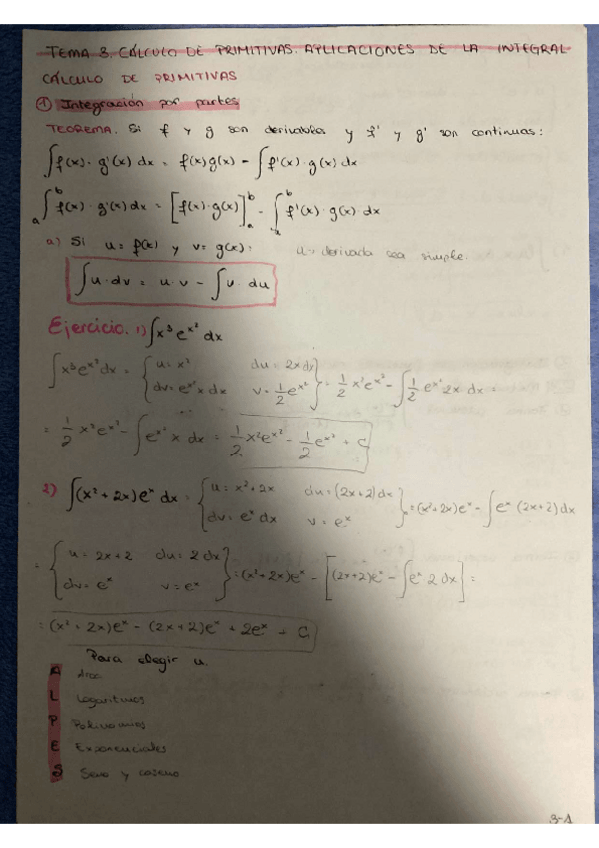 TEMA 3. CÁLCULO DE PRIMITIVAS. APLICACIONES DE LA INTEGRAL
CÁLCULO DE PRIMITIVAS
① Integración por partes
TEOREMA. Si f y g son derivables y f' y g' son continuas:
∫f(x)·g'(x) dx = f(x)g(x) - ∫f'(x)·g(x) dx
∫ₐᵇ f(x)·g'(x) dx = [f(x)·g(x)]ₐᵇ - ∫ₐᵇ f'(x)·g(x) dx
a) Si u = f(x) y v = g(x): u → derivada sea simple.
∫u·dv = u·v - ∫v·du
Ejercicio. 1) ∫x³e^x² dx
∫x³e^x² dx = { u = x² du = 2x dx dv = e^x² x dx v = 1/2 e^x² } = 1/2 x²e^x² - ∫1/2 e^x² 2x dx =
= 1/2 x²e^x² - ∫e^x² x dx = 1/2 x²e^x² - 1/2 e^x² + C
2) ∫(x² + 2x)e^x dx = { u = x² + 2x du = (2x+2)dx dv = e^x dx v = e^x } = (x²+2x)e^x - ∫e^x (2x+2)dx
= { u = 2x+2 du = 2dx dv = e^x v = e^x } = (x²+2x)e^x - [(2x+2)e^x - ∫e^x·2dx] =
= (x² + 2x)e^x - (2x+2)e^x + 2e^x + C
Para elegir u.
A Arco
L Logaritmos
P Polinomios
E Exponenciales
S Seno y coseno
3-1